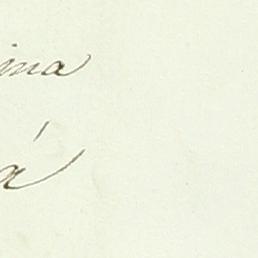 ina
á